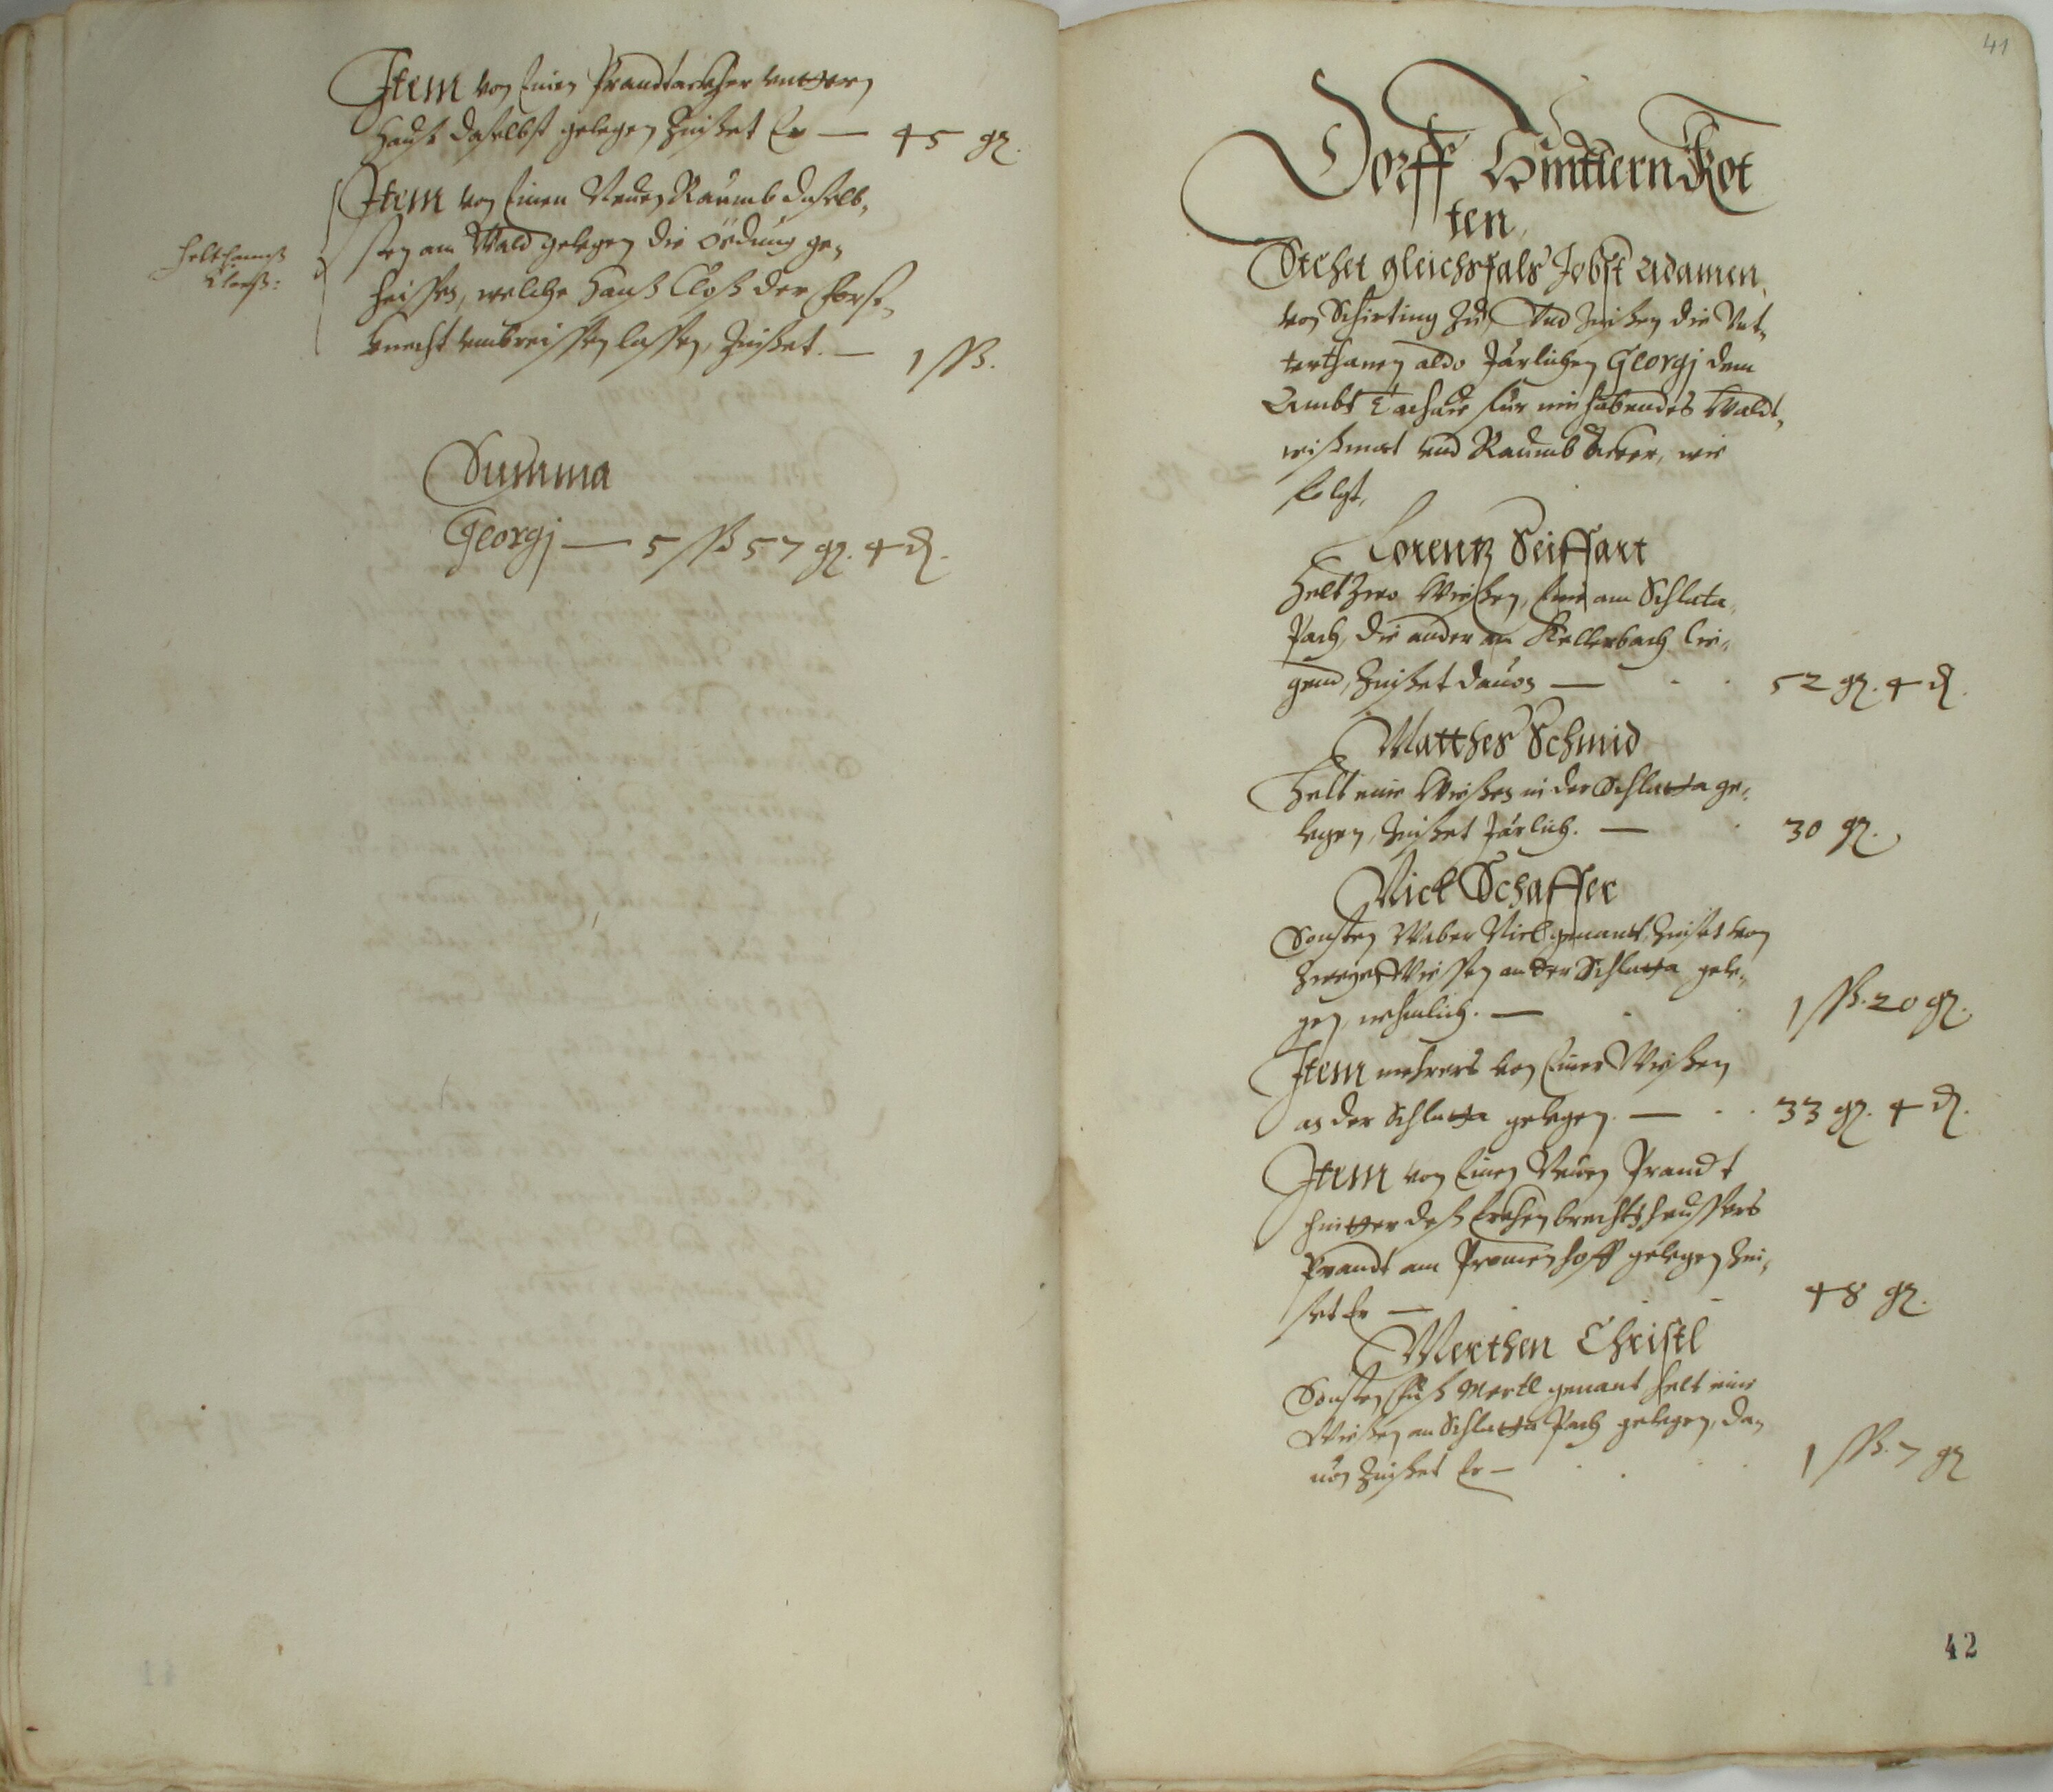 Item von Einen Prandtackher unttern
Hauß daselbst gelegen Zinßet Er — 45 gr.
Item von Einen Neuen Raumb daselb,
sten am Wald gelegen die Ödung ge,
heissen, welche Hanß Cloß der Forst,
knecht umbreissen lassen, Zinßet. — 1 ßß.
helt Hannß
Clooß:
Summa
Georgj — 5 ßß 57 gr. 4 d.
41
Dorff Hinttern Kot
ten,
Stehet gleichsfals Jobst Adamen
von Schirting Zu, Und Zinßen die Unt,
terthanen aldo Järlichen Georgj dem
Ambt Tachau für inhabendes Waldt,
wißmat und Raumb Äcker, wie
folgt,
Lorentz Seiffart
Helt Zwo Wießen, Eine am Schlata,
Pach, die ander am Kellerbach lie,
gend, Zinßet dauon — 52 gr. 4 d.
Matthes Schmid
Helt eine Wießen in der Schlatta ge,
legen, Zinßet Järlich. — 30 gr.
Nickl Schaffer
Sonsten Waber Nickl genant, Zinset von
Zweyen Wiessen an der Schlatta gele,
gen, nehmlich. — 1 ßß. 20 gr.
Item mehrers von Einer Wießen
an der Schlatta gelegen. — 33 gr. 4 d.
Item von Einen Neuen Prandt
hintter deß
Prandt am Promenhoff gelegen Zin,
set Er — 48 gr.
Merthen Christl
Sonsten Fuch Mertl genant helt eine
Wießen an Schlatta Pach gelegen, da,
uon Zinßet Er — 1 ßß. 7 gr
42